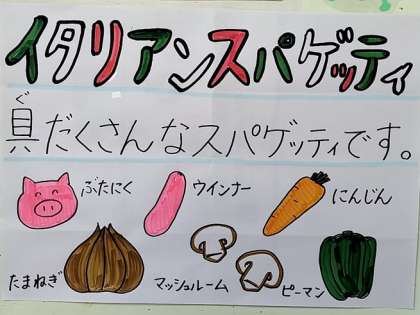 イタリアンスパゲッティ
ぐ
具だくさんなスパゲッティです。
ぶたにく
ウインナー
にんじん
たまねぎ
マッシュルーム
ピーマン